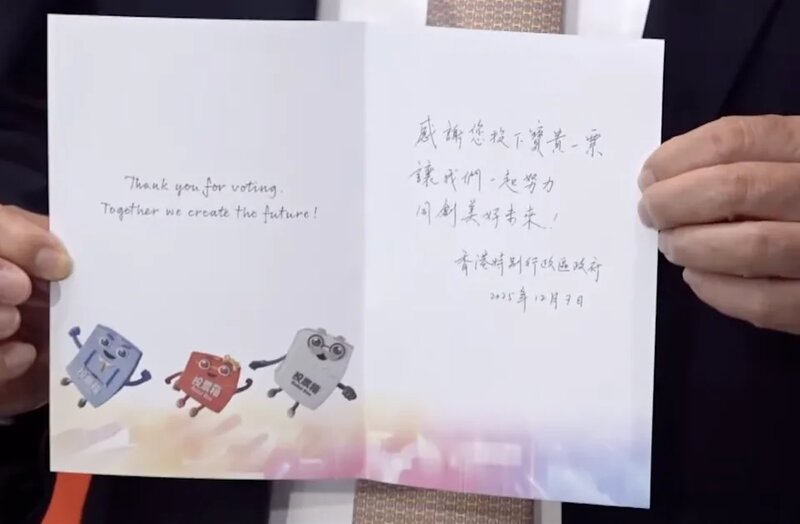 Thank you for voting.
Together we create the future!
感謝您投下寶貴一票
讓我們一起努力
同創美好未來！
香港特別行政區政府
2025年12月7日
投票箱
投票箱